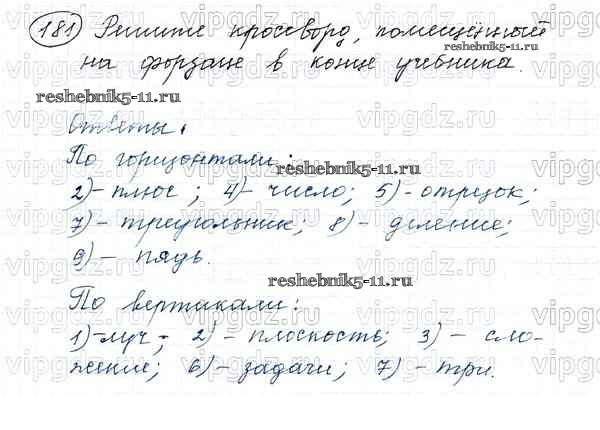 181 Решите кроссворд, помещённый
на форзаце в конце учебника.
reshebnik5-11.ru
reshebnik5-11.ru
Ответы:
По горизонтали:
reshebnik5-11.ru
2)– плюс; 4)– число; 5)– отрезок;
7)– треугольник; 8)– деление;
9)– пядь.
reshebnik5-11.ru
По вертикали:
1)– луч; 2)– плоскость; 3)– сло-
жение; 6)– задачи; 7)– три.
vipgdz.ru